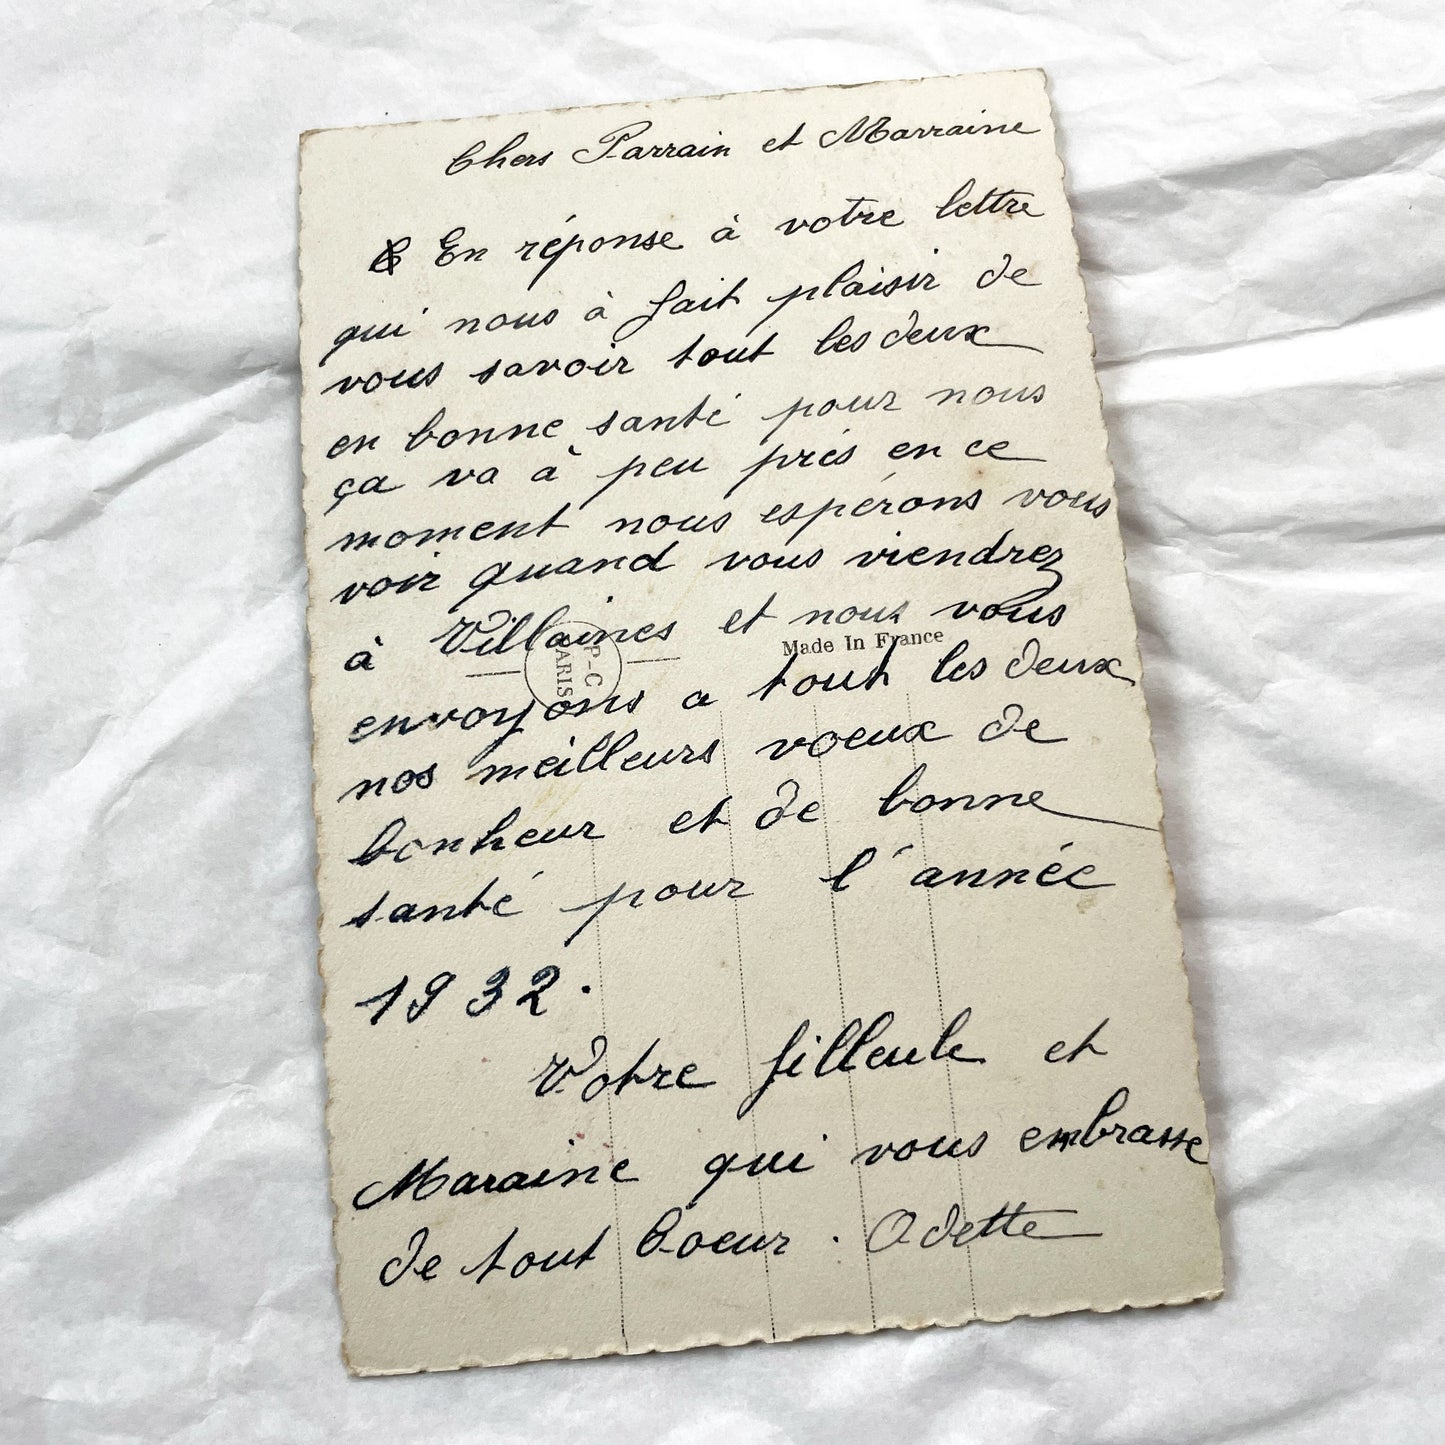 Chers Parrain et Marraine
En réponse à votre lettre
qui nous à fait plaisir de
vous savoir tout les deux
en bonne santé pour nous
ça va à peu près en ce
moment nous espérons vous
voir quand vous viendrez
à Villaines et nous vous
Made In France
P-C
PARIS
envoyons a tout les deux
nos meilleurs voeux de
bonheur et de bonne
santé pour l'année
1932.
Votre filleule et
Maraine qui vous embrasse
de tout Coeur. Odette